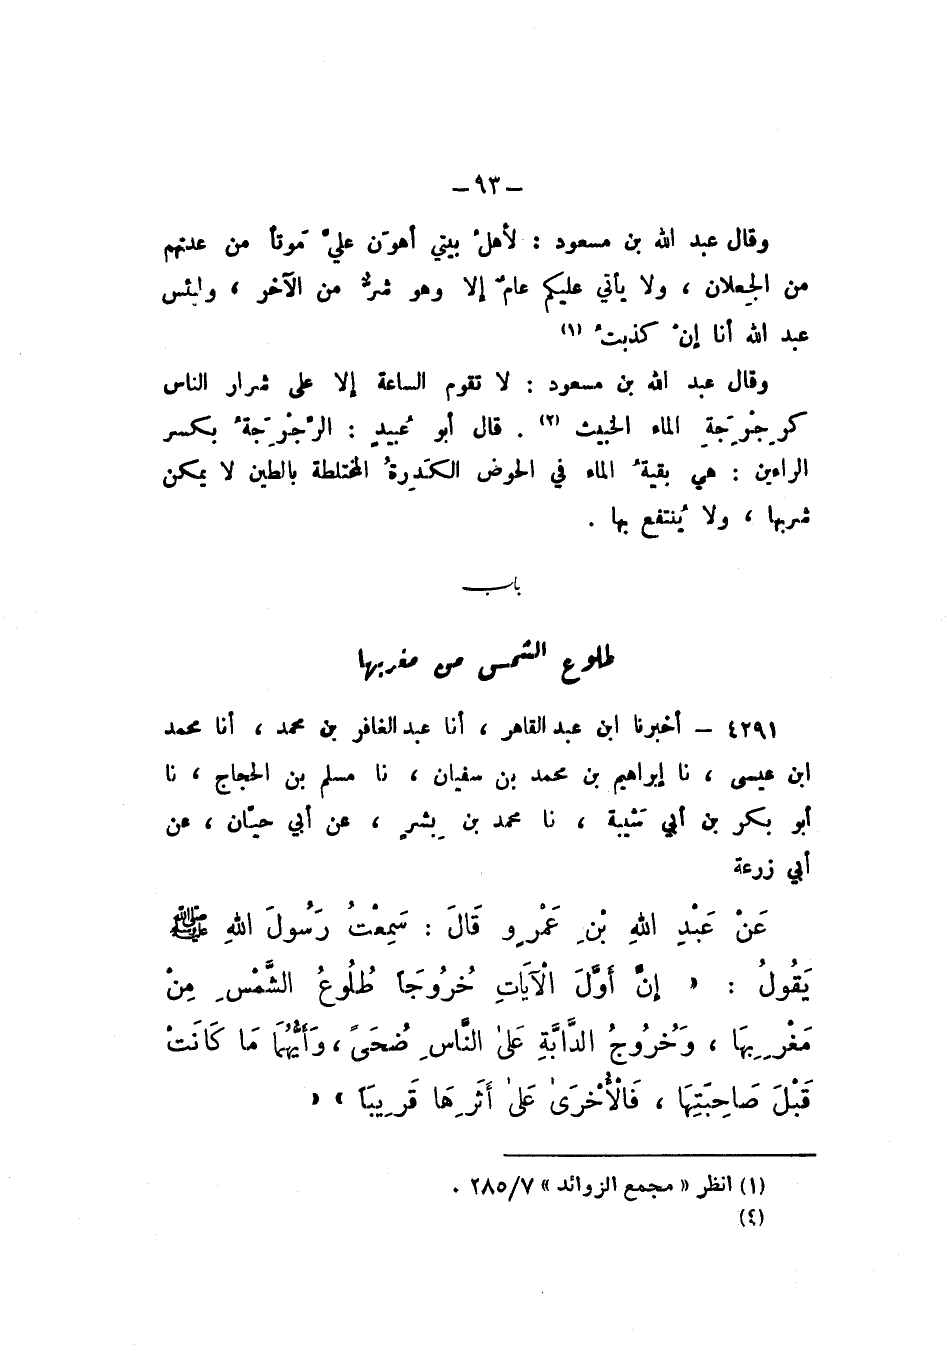 ـ ٩٣ ـ
وقال عبد الله بن مسعود : لأهلُ بيتي أهوَن عليَّ مَوتاً من عدتهم
من الجِعلان ، ولا يأتي عليكم عامٌ إلا وهو شرٌّ من الآخر ، ولبئس
عبد الله أنا إنْ كذبتُ (١)
وقال عبد الله بن مسعود : لا تقوم الساعة إلا على شرار الناس
كرِجْرِجَةِ الماء الخبيث (٢) . قال أبو عُبيدٍ : الرِّجْرِجَةُ بكسر
الراءين : هي بقيةُ الماء في الحوض الكَدِرةُ المختلطة بالطين لا يمكن
شربها ، ولا يُنتفع بها .
باب
طلوع الشمس من مغربها
٤٢٩١ ـ أخبرنا ابن عبد القاهر ، أنا عبد الغافر بن محمد ، أنا محمد
ابن عيسى ، نا إبراهيم بن محمد بن سفيان ، نا مسلم بن الحجاج ، نا
أبو بكر بن أبي شَيبة ، نا محمد بن بِشرٍ ، عن أبي حيّان ، عن
أبي زرعة
عَنْ عَبْدِ اللهِ بْنِ عَمْرٍو قَالَ : سَمِعْتُ رَسُولَ اللهِ ﷺ
يَقُولُ : « إِنَّ أَوَّلَ الْآيَاتِ خُرُوجَاً طُلُوعُ الشَّمْسِ مِنْ
مَغْرِبِهَا ، وَخُرُوجُ الدَّابَّةِ عَلَىٰ النَّاسِ ضُحَىً ، وَأَيُّهُمَا مَا كَانَتْ
قَبْلَ صَاحِبَتِهَا ، فَالْأُخْرَىٰ عَلَىٰ أَثَرِهَا قَرِيبَاً »
(١) انظر « مجمع الزوائد » ٢٨٥/٧ .
(٤)